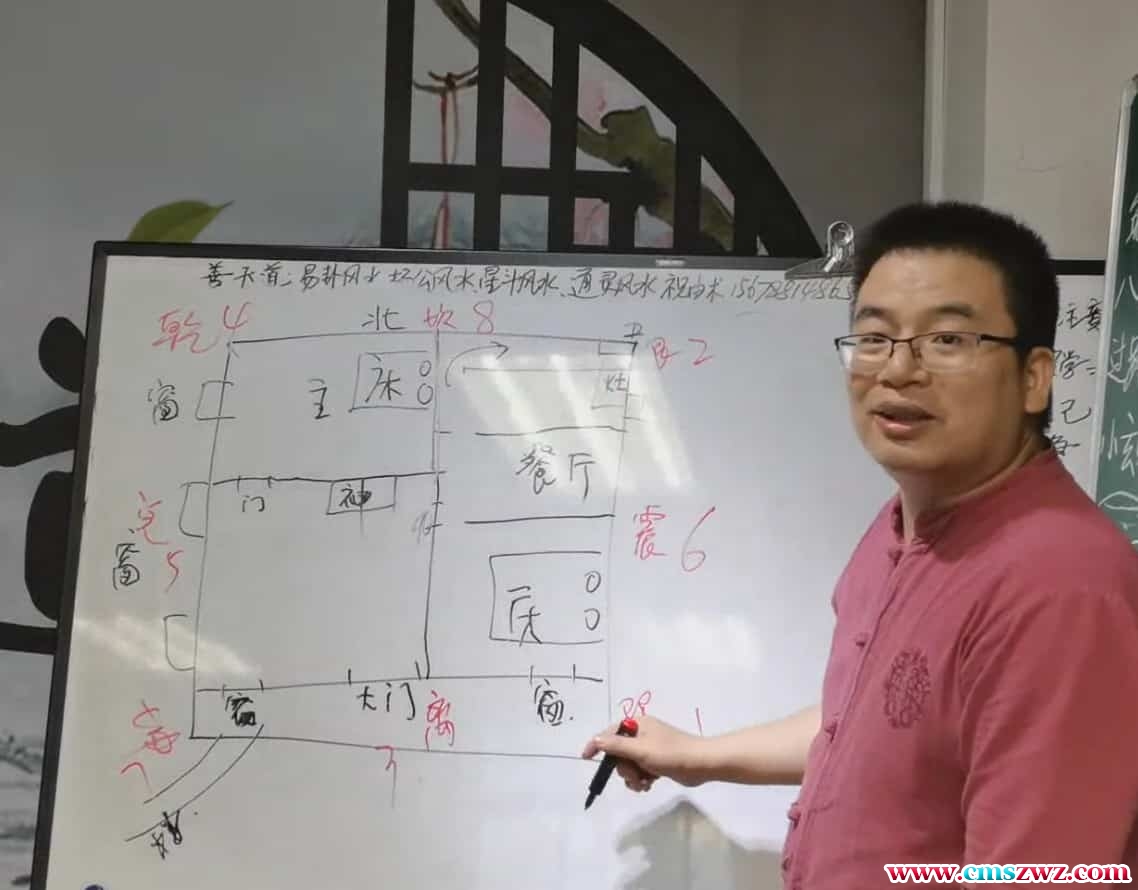 善天道：易卦风水 杨公风水、星斗风水、通灵风水 祝由术
乾4 北 坎8 艮2
窗 主 床 灶
餐厅
门 神
兑
窗 5 震6
床
窗 大门 离 窗
7 3 1
路
主要
学
己
八
www.cmszwz.com